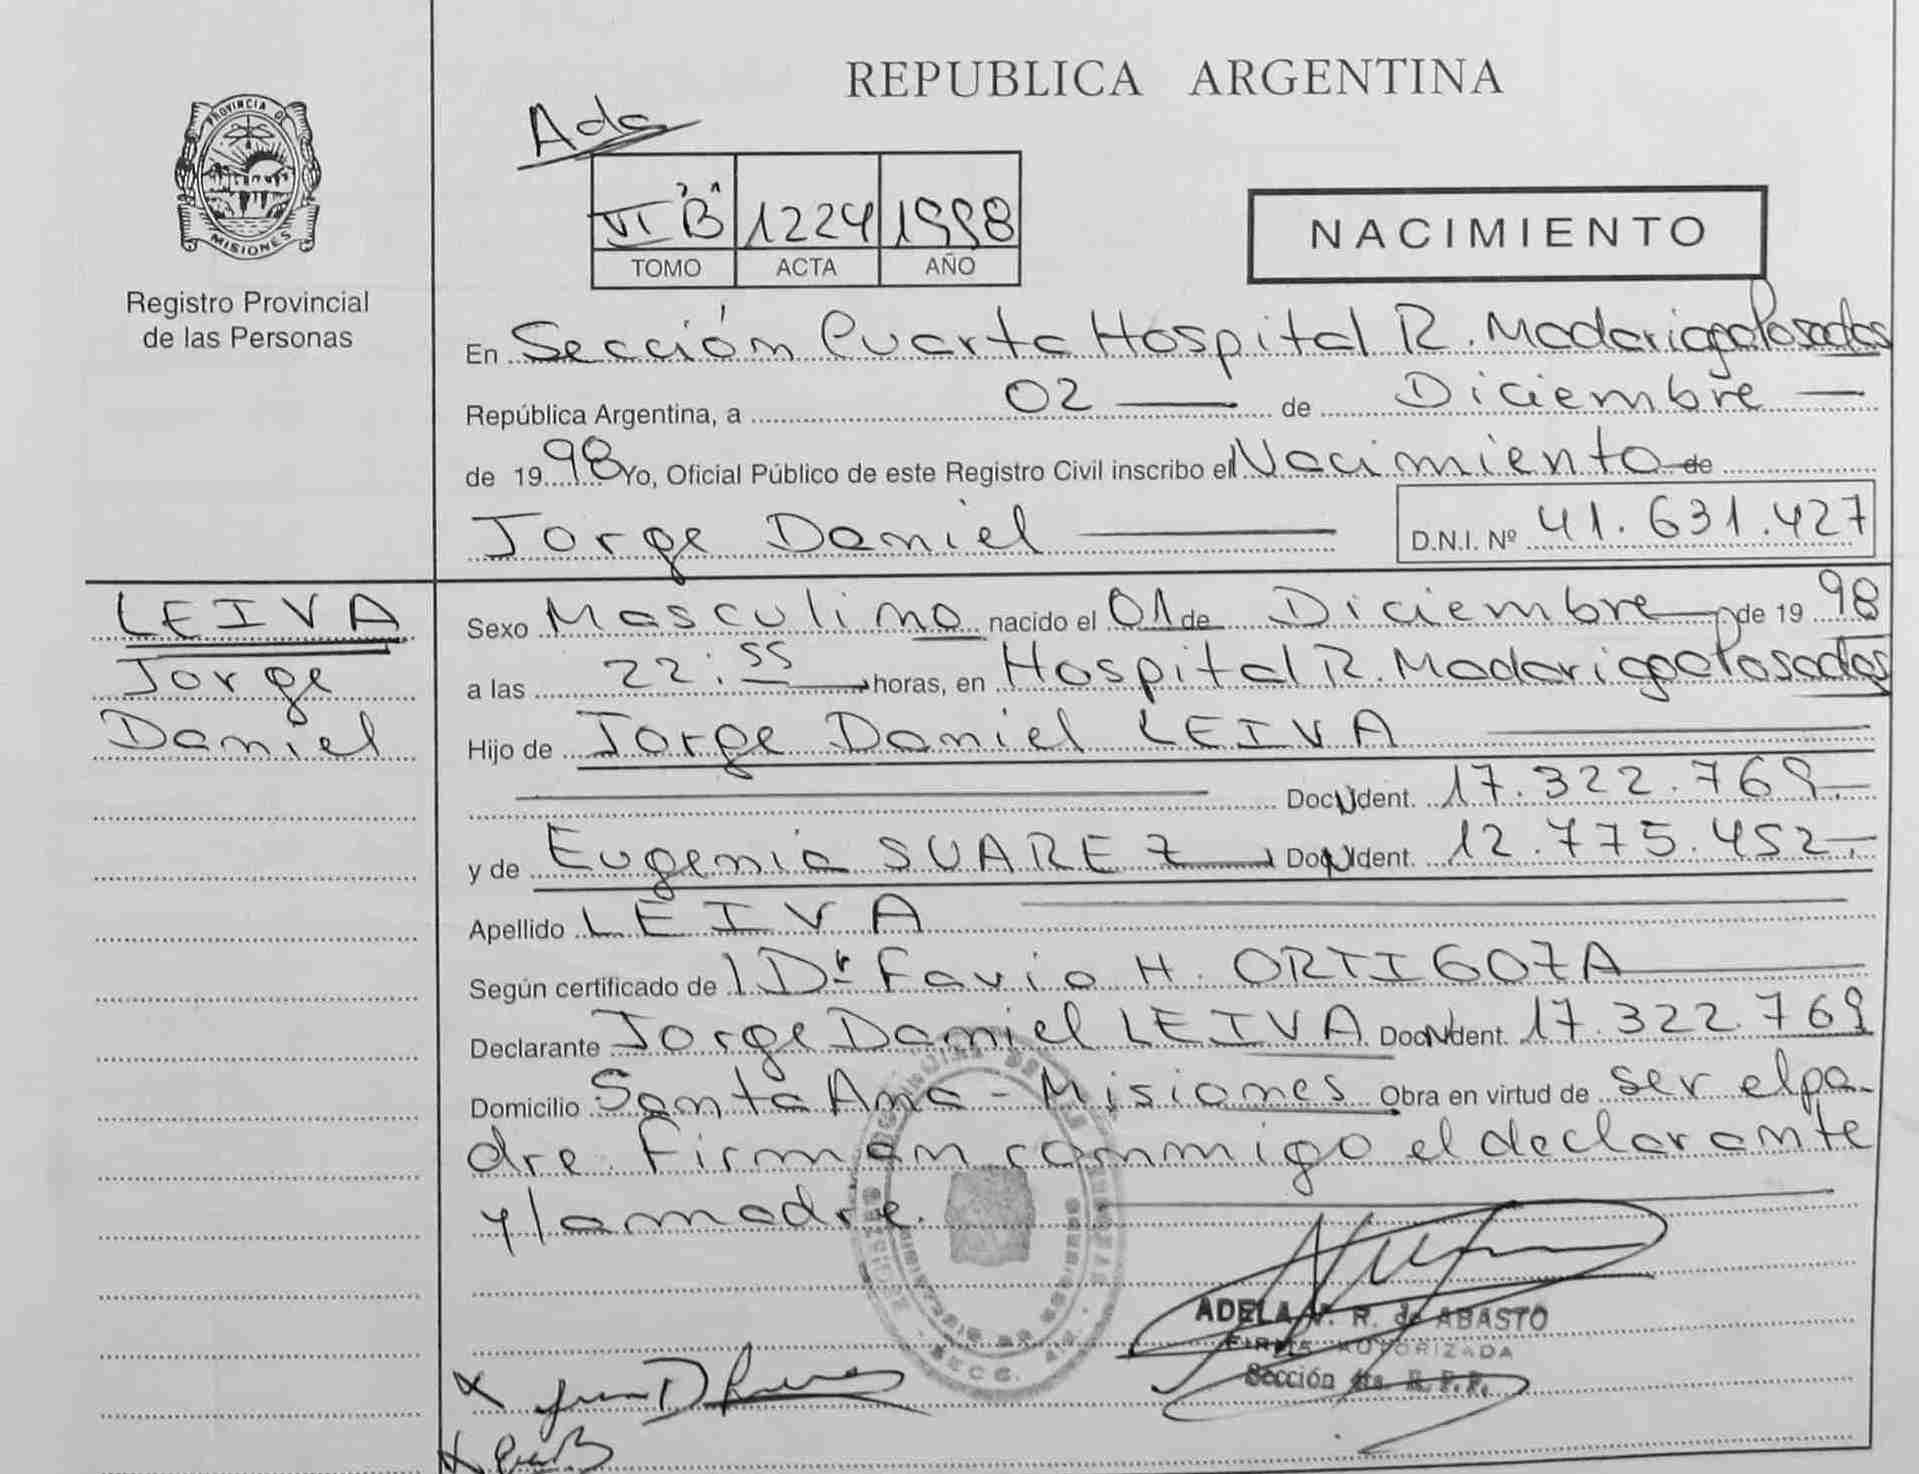 REPUBLICA ARGENTINA
PROVINCIA DE
MISIONES
Registro Provincial
de las Personas
VI "B" 1224 1998
TOMO ACTA AÑO
NACIMIENTO
En Sección Cuarta Hospital R. Madariaga Posadas
República Argentina, a 02 de Diciembre
de 1998 Yo, Oficial Público de este Registro Civil inscribo el Nacimiento de
Jorge Daniel D.N.I. Nº 41.631.427
LEIVA
Jorge
Daniel
Sexo Masculino nacido el 01 de Diciembre de 1998
a las 22:55 horas, en Hospital R. Madariaga Posadas
Hijo de Jorge Daniel LEIVA
Doc. Ident. 17.322.769.
y de Eugenia SUAREZ Doc. Ident. 12.775.452.
Apellido LEIVA
Según certificado de Dr Favio H. ORTIGOZA
Declarante Jorge Daniel LEIVA Doc. Ident. 17.322.769
Domicilio Santa Ana - Misiones Obra en virtud de ser el pa-
dre. Firman conmigo el declarante
y la madre.
ADELA V. R. de ABASTO
FIRMA AUTORIZADA
Sección 4ta. R.P.P.
SECC. 4ta